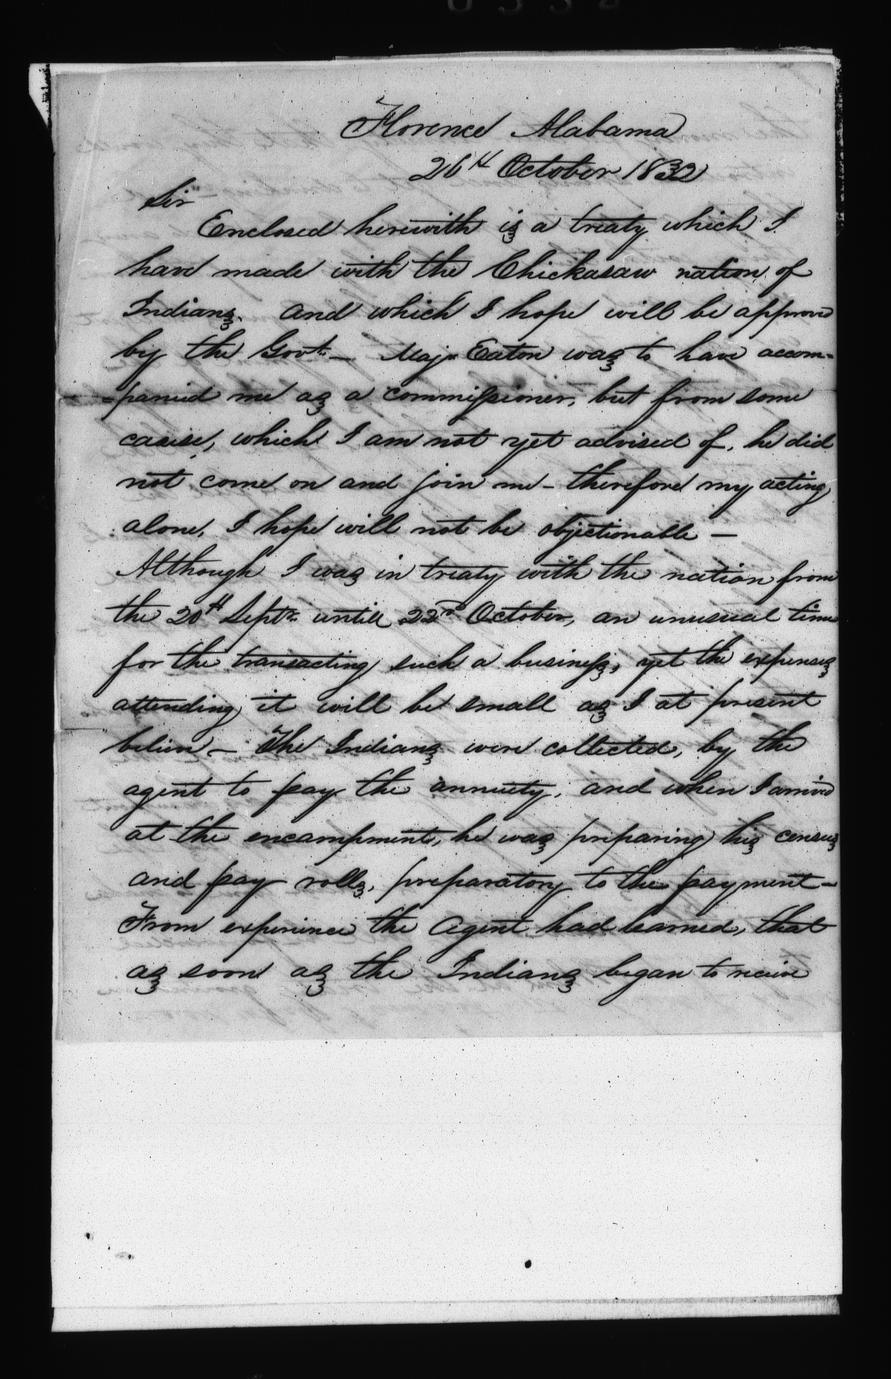 Florence Alabama
26th October 1832
Sir
Enclosed herewith is a treaty which I
have made with the Chickasaw nation of
Indians. And which I hope will be approved
by the Govt. — Maj. Eaton was to have accom-
-panied me as a commissioner, but from some
cause, which I am not yet advised of, he did
not come on and join me — therefore my acting
alone, I hope will not be objectionable —
Although I was in treaty with the nation from
the 20th Septr. until 22nd October, an unusual time
for the transacting such a business, yet the expenses
attending it will be small as I at present
believe — The Indians were collected, by the
agent to pay the annuity, and when I arrived
at the encampment, he was preparing his census
and pay rolls, preparatory to the payment —
From experience the Agent had learned, that
as soon as the Indians began to receive